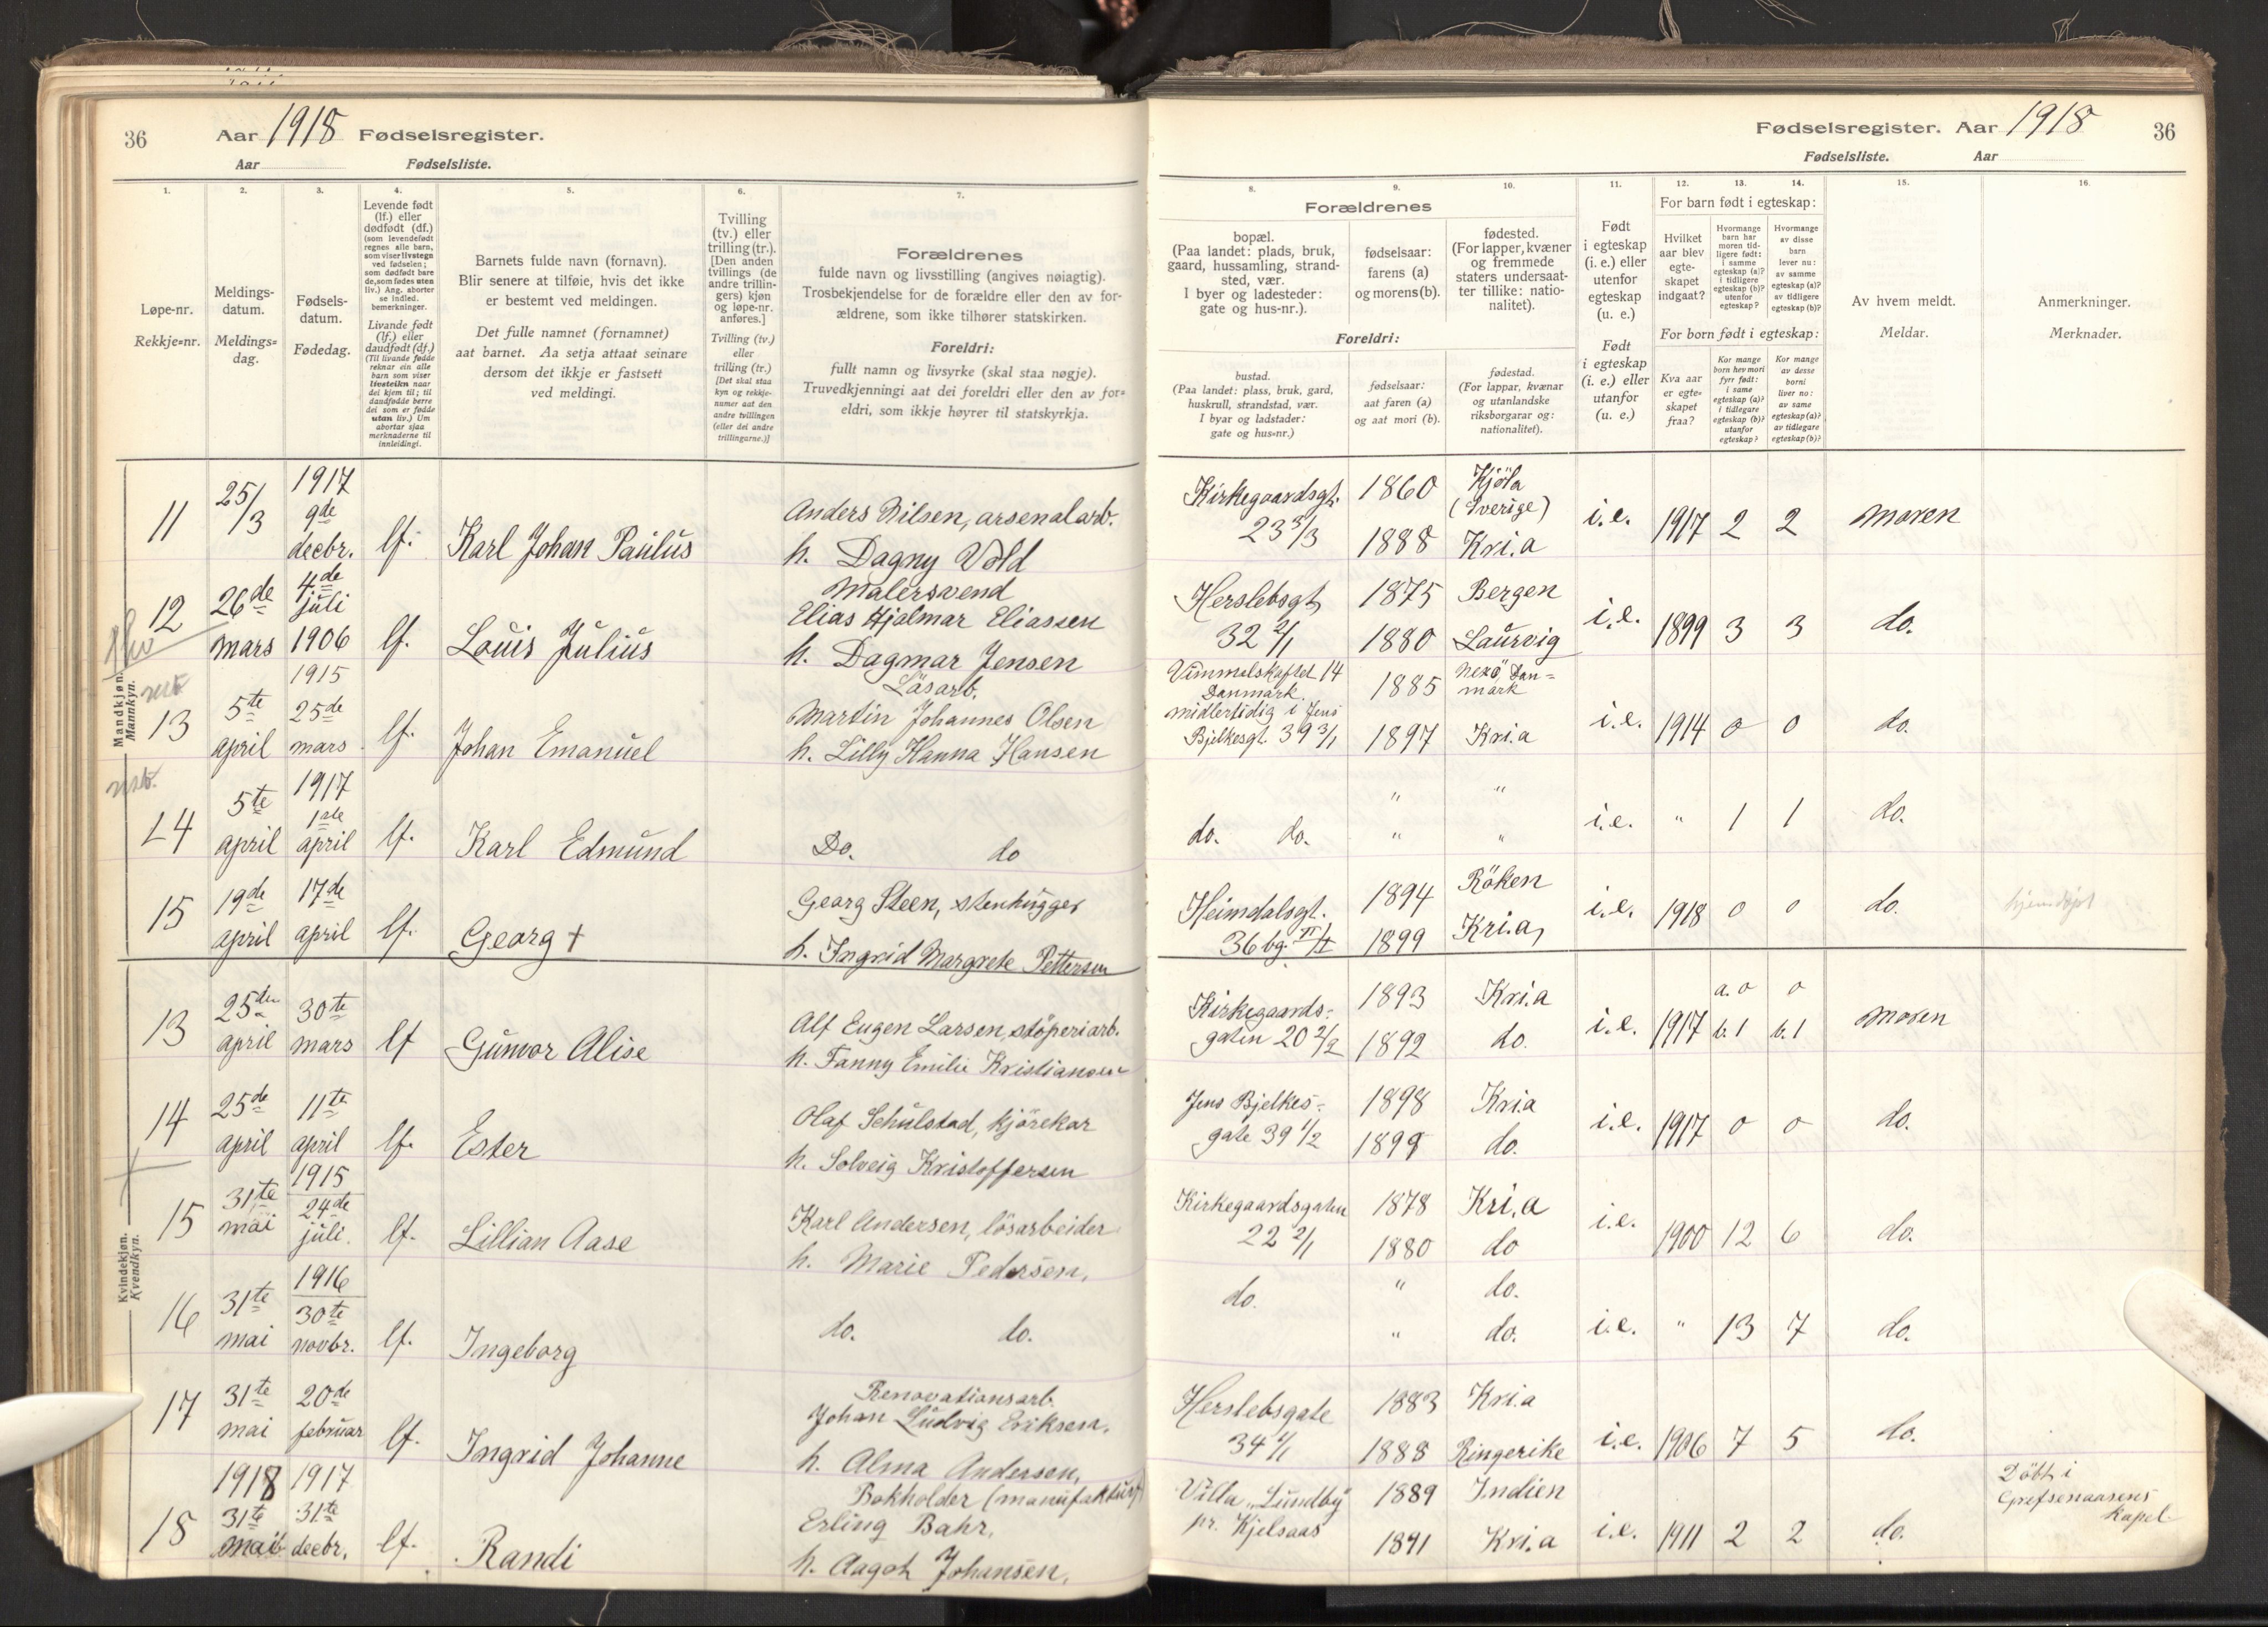 36
Aar 1918 Fødselsregister.
Aar Fødselsliste.
1.
2.
3.
4.
5.
6.
7.
Løpe-nr.
Rekkje-nr.
Meldings-
datum.
Meldings-
dag.
Fødsels-
datum.
Fødedag.
Levende født
(lf.) eller
dødfødt (df.)
(som levendefødt
regnes alle barn,
som viser livstegn
ved fødselen;
som dødfødt bare
de, som fødes uten
liv.) Ang. aborter
se indled.
bemerkninger.
Livande født
(lf.) eller
daudfødt (df.)
(Til livande fødde
reknar ein alle
barn som viser
livsteikn naar
dei kjem til; til
daudfødde berre
dei som er fødde
utan liv.) Um
abortar sjaa
merknaderne til
innleidingi.
Barnets fulde navn (fornavn).
Blir senere at tilføie, hvis det ikke
er bestemt ved meldingen.
Det fulle namnet (fornamnet)
aat barnet. Aa setja attaat seinare
dersom det ikkje er fastsett
ved meldingi.
Tvilling
(tv.) eller
trilling (tr.).
[Den anden
tvillings (de
andre trillin-
gers) kjøn
og løpe-nr.
anføres.]
Tvilling (tv.)
eller
trilling (tr.)
[Det skal staa
kyn og rekkje-
numer aat den
andre tvillingen
(eller dei andre
trillingarne.)]
Forældrenes
fulde navn og livsstilling (angives nøiagtig).
Trosbekjendelse for de forældre eller den av for-
ældrene, som ikke tilhører statskirken.
Foreldri:
fullt namn og livsyrke (skal staa nøgje).
Truvedkjenningi aat dei foreldri eller den av for-
eldri, som ikkje høyrer til statskyrkja.
Mandkjøn.
Mannkyn.
11 25/3 1917 9de decbr. lf. Karl Johan Paulus
Anders Nilsen, arsenalarb.
h. Dagny Vold
12 26de mars 4de juli 1906 lf. Louis Julius
Malersvend
Elias Hjalmar Eliassen
h. Dagmar Jensen
13 5te april 1915 25de mars lf. Johan Emanuel
Løsarb.
Martin Johannes Olsen
h. Lilly Hanna Hansen
14 5te april 1917 1ste april lf. Karl Edmund
Do. do
15 19de april 17de april lf. Georg +
Georg Steen, stenhugger
h. Ingrid Margrete Pettersen
Kvindekjøn.
Kvendkyn.
13 25de april 30te mars lf Gunvor Alise
Alf Eugen Larsen, støperiarb.
h. Fanny Emilie Kristiansen
14 25de april 11te april lf. Ester
Olaf Schulstad, kjørekar
h. Solveig Kristoffersen
15 31te mai 1915 24de juli. lf. Lillian Aase
Karl Andersen, løsarbeider
h. Marie Pedersen.
16 31te mai 1916 30te novbr. lf. Ingeborg
do. do.
17 31te mai 20de februar lf. Ingrid Johanne
Renovationsarb.
Johan Ludvig Eriksen.
h. Alma Andersen.
18 1918 31te mai 1917 31te decbr. lf. Randi
Bokholder (manufaktur)
Erling Bahr.
h. Aagot Johansen.
Fødselsregister. Aar 1918
36
Fødselsliste. Aar
8.
9.
10.
11.
12.
13.
14.
15.
16.
Forældrenes
bopæl.
(Paa landet: plads, bruk,
gaard, hussamling, strand-
sted, vær.
I byer og ladesteder:
gate og hus-nr.).
fødselsaar:
farens (a)
og morens (b).
fødested.
(For lapper, kvæner
og fremmede
staters undersaat-
ter tillike: natio-
nalitet).
Foreldri:
bustad.
(Paa landet: plass, bruk, gard,
huskrull, strandstad, vær.
I byar og ladstader:
gate og hus-nr.)
fødselsaar:
aat faren (a)
og aat mori (b).
fødestad.
(For lappar, kvænar
og utanlandske
riksborgarar og:
nationalitet).
Født
i egteskap
(i. e.) eller
utenfor
egteskap
(u. e.)
Født
i egteskap
(i. e.) eller
utanfor
(u. e.)
For barn født i egteskap:
Hvilket
aar blev
egte-
skapet
indgaat?
Hvormange
barn har
moren tid-
ligere født:
i samme
egteskap (a)?
i tidligere
egteskap (b)?
utenfor
egteskap?
Hvormange
av disse
barn
lever nu:
av samme
egteskap (a)?
av tidligere
egteskap (b)?
For born født i egteskap:
Kva aar
er egte-
skapet
fraa?
Kor mange
born hev mori
fyrr født:
i same
egteskap (a)?
i tidlegare
egteskap (b)?
utanfor
egteskap?
Kor mange
av desse
borni
liver no:
av same
egteskap (a)?
av tidlegare
egteskap (b)?
Av hvem meldt.
Meldar.
Anmerkninger.
Merknader.
Kirkegaardsgt. 23 3/3 1860 Kjöla (Sverige) 1888 Kri.a i.e. 1917 2 2 moren
Herslebsgt. 32 2/1 1875 Bergen 1880 Laurvig i.e. 1899 3 3 do.
Vimmelskaftet 14 Danmark. midlertidig i Jens Bjelkesgt. 39 3/1 1885 Nexö, Danmark 1897 Kri.a i.e. 1914 0 0 do.
do. do. " " " " i.e. " 1 1 do.
Heimdalsgt. 36 bg. 1894 Röken 1899 Kri.a, i.e. 1918 0 0 do. hjemdøpt
Kirkegaards-gaten 20 2/2 1893 Kri.a 1892 do. i.e. 1917 a. 0 b. 1 0 b. 1 moren
Jens Bjelkes-gate 39 1/2 1898 Kria 1899 do. i.e. 1917 0 0 do.
Kirkegaardsgaten 22 2/1 1878 Kri.a 1880 do i.e. 1900 12 6 do.
do. " do. " do. i.e. " 13 7 do.
Herslebsgate 34 1883 Kri.a 1888 Ringerike i.e. 1906 7 5 do.
Villa "Lundby" pr. Kjelsaas 1889 Indien 1891 Kri.a i.e. 1911 2 2 do.
Döbt i
Grefsenaasens
kapel